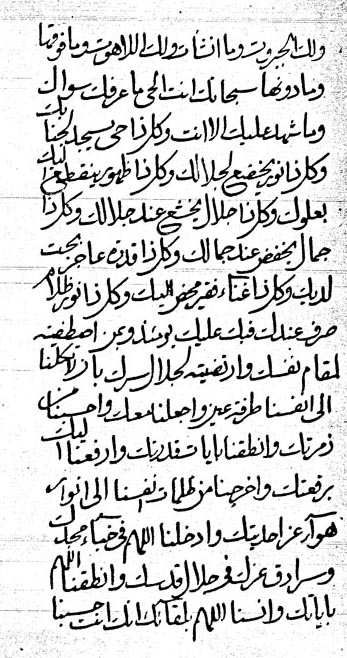 ولك الجبروت وما انشأت ولك اللاهوت وما فوقها
وما دونها سبحانك انت الحي ما عرفك سواك
وما شهد عليك الا انت وكل ذا حي يسجد لجنابك
وكل ذا نور يخضع لجلالك وكل ذا ظهور ينقطع اليك
بعلوك وكل ذا جلال يخشع عند جلالك وكل ذا
جمال يخفض عند جمالك وكل ذا قدرة عاجز بحت
لديك وكل ذا غناء فقير محض اليك وكل ذا نور ظلام
صرف عندك فبك عليك يومئذ وبمن اصطفيته
لمقام نفسك وارتضيته لجلال سرك بان لا تكلنا
الى انفسنا طرفة عين واجعلنا معك واحسبنا من
زمرتك وانطقنا بايات تقدرتك وارفعنا اليك
برفعتك واخرجنا من ظلمات انفسنا الى انوار
هواء عز احديتك وادخلنا اللهم في خباء مجدك
وسرادق عزك في جلال قدسك وانطقنا اللهم
باياتك وانسنا اللهم بلقائك انك انت حسبنا